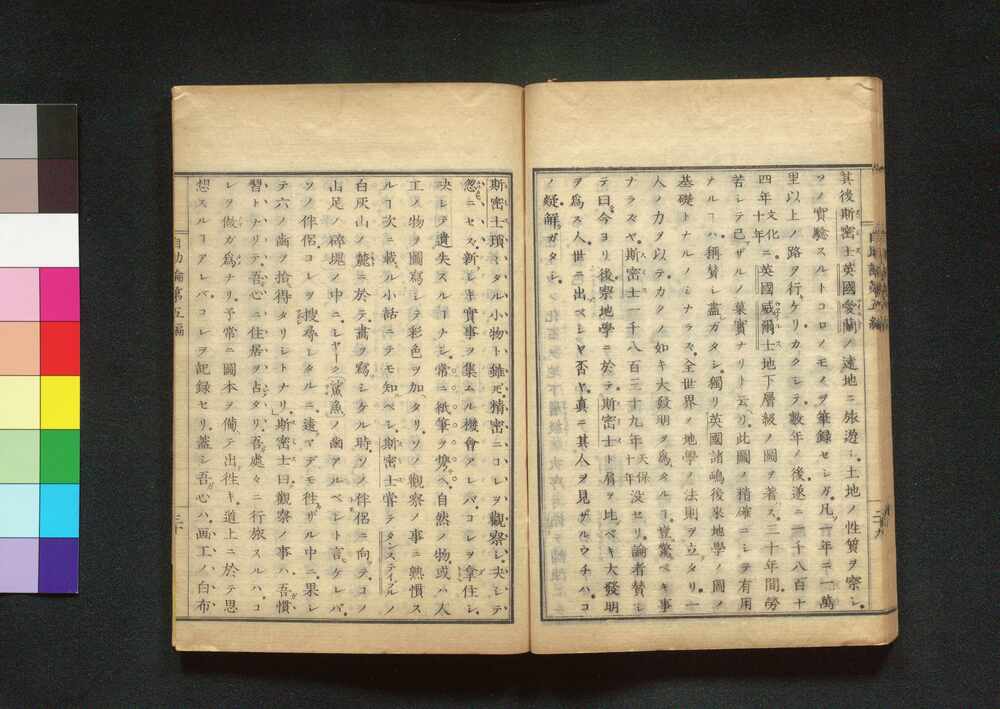 其後斯密士英國愛蘭ノ遠地ニ旅遊シ土地ノ性質ヲ察シ
ソノ實驗スルトコロノモノヲ筆録セシガ凡一年ニ一萬
里以上ノ路ヲ行ケリカクシテ數年ノ後遂ニ一千八百十
四年文化十年ニ英國威爾士地下層級ノ圖ヲ著ス二十年間勞
苦シテ已ザルノ菓實ナリト云リ此圖ノ精確ニシテ有用
ナルヿハ稱賛シ盡ガタシ獨リ英國諸嶋後來地學ノ圖ノ
基礎トナルノミナラス全世界ノ地學ノ法則ヲ立タリ一
人ノ力ヲ以テカクノ如キ大發明ヲ爲タルヿ豈驚ベキ事
ナラズヤ斯密士一千八百三十九年天保十年沒セリ論者賛シ
テ曰今ヨリ後察地學ニ於テ斯密士ト肩ヲ比ベキ大發明
ヲ爲ス人世ニ出ベシヤ否ヤ真ニ其人ヲ見ザルウチハコ
ノ疑解ガタシ
斯密士瑣々タル小物ト雖𪜈精密ニコレヲ觀察シ夬シテ
忽ニセズ新シキ實事ヲ集ムル機會アレバコレヲ拿住シ
夬シテ遺失スルヿナシ常ニ紙筆ヲ携ヘ自然ノ物或ハ人
工ノ物ヲ圖寫シテ彩色ヲ加タリソノ觀察ノ事ニ熟慣ス
ルヿ次ニ載ル小話ニテモ知ベシ斯密士甞テダンステイブルノ
白灰山ノ麓ニ於テ畫ヲ寫シケル時ソノ伴侶ニ向テコノ
山足ノ碎塊ノ中ニシヤーク鯊魚ノ齒アルベシト言ケレバ
ソノ伴侶コレヲ搜尋シタルニ遠マデモ徃ザル中ニ果シ
テ六ノ齒ヲ拾得タリシトナリ斯密士曰觀察ノ事ハ吾慣
習トナリテ吾心ニ住居ヲ占タリ吾處々ニ行旅スルハコ
レヲ做ガ爲ナリ予常ニ圖本ヲ備テ出徃キ道上ニ於テ思
想スルヿアレバコレヲ記録セリ蓋シ吾心ハ画工ノ白布
自助論第五編
三十